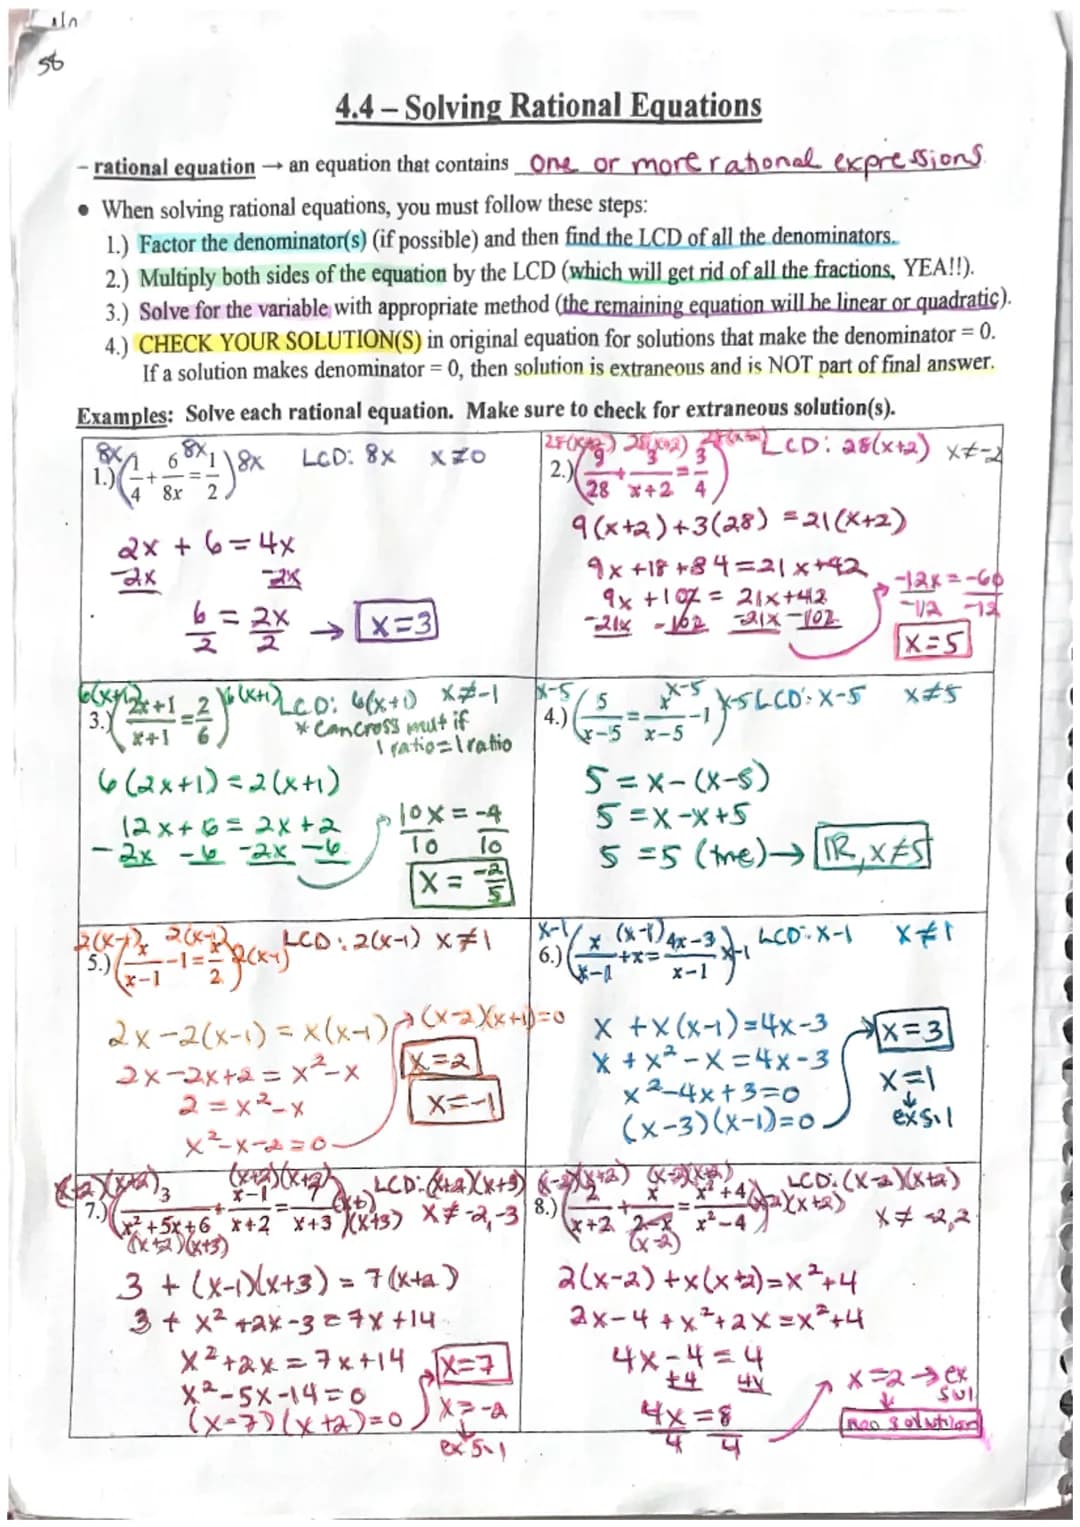 58
4.4 – Solving Rational Equations
– rational equation → an equation that contains one or more rational expressions
• When solving rational equations, you must follow these steps:
1.) Factor the denominator(s) (if possible) and then find the LCD of all the denominators.
2.) Multiply both sides of the equation by the LCD (which will get rid of all the fractions, YEA!!).
3.) Solve for the variable with appropriate method (the remaining equation will be linear or quadratic).
4.) CHECK YOUR SOLUTION(S) in original equation for solutions that make the denominator = 0.
If a solution makes denominator = 0, then solution is extraneous and is NOT part of final answer.
Examples: Solve each rational equation. Make sure to check for extraneous solution(s).
1.) 8x(1/4 + 6/8x = 1/2)8x LCD: 8x x≠0
2x + 6 = 4x
-2x -2x
6/2 = 2x/2 → x=3
2.) 28(x+2) (9/28 + 3/x+2 = 3/4) LCD: 28(x+2) x≠-2
9(x+2)+3(28) = 21(x+2)
9x+18+84=21x+42
9x+102 = 21x+42
-21x -102 -21x -102
-12x = -60
-12 -12
x=5
3.) 6(x+1)(2x+1/x+1 = 2/6)6(x+1) LCD: 6(x+1) x≠-1
* Can cross mult if
1 ratio=1 ratio
6(2x+1)=2(x+1)
12x+6=2x+2
-2x -6 -2x -6
10x = -4
10 10
x = -2/5
4.) x-5(5/x-5 = x/x-5 - 1)x-5 LCD: x-5 x≠5
5 = x-(x-5)
5 = x-x+5
5 = 5 (true) → ℝ, x≠5
5.) 2(x-1)(x/x-1 - 1 = x/2)2(x-1) LCD: 2(x-1) x≠1
2x-2(x-1) = x(x-1)
2x-2x+2 = x²-x
2 = x²-x
x²-x-2=0
(x-2)(x+1)=0
x=2
x=-1
6.) x-1(x/x-1 + x = 4x-3/x-1)x-1 LCD: x-1 x≠1
x + x(x-1)=4x-3
x + x²-x = 4x-3
x²-4x+3=0
(x-3)(x-1)=0
x=3
x=1
↓
ex sol
7.) (x+2)(x+3) (3/x²+5x+6 + x-1/x+2 = 7/x+3) (x+2)(x+3) LCD: (x+2)(x+3) x≠-2,-3
(x+2)(x+3)
3 + (x-1)(x+3) = 7(x+2)
3 + x²+2x-3 = 7x+14
x²+2x = 7x+14
x²-5x-14=0
(x-7)(x+2)=0
x=7
x=-2
↓
ex sol
8.) (x-2)(x+2) (2/x+2 + x/2-x = x²+4/x²-4)(x-2)(x+2) LCD: (x-2)(x+2) x≠-2,2
(x-2)
2(x-2)+x(x+2)=x²+4
2x-4+x²+2x=x²+4
4x-4=4
+4
4x=8
4 4
x=2 → ex sol
↓
no solution